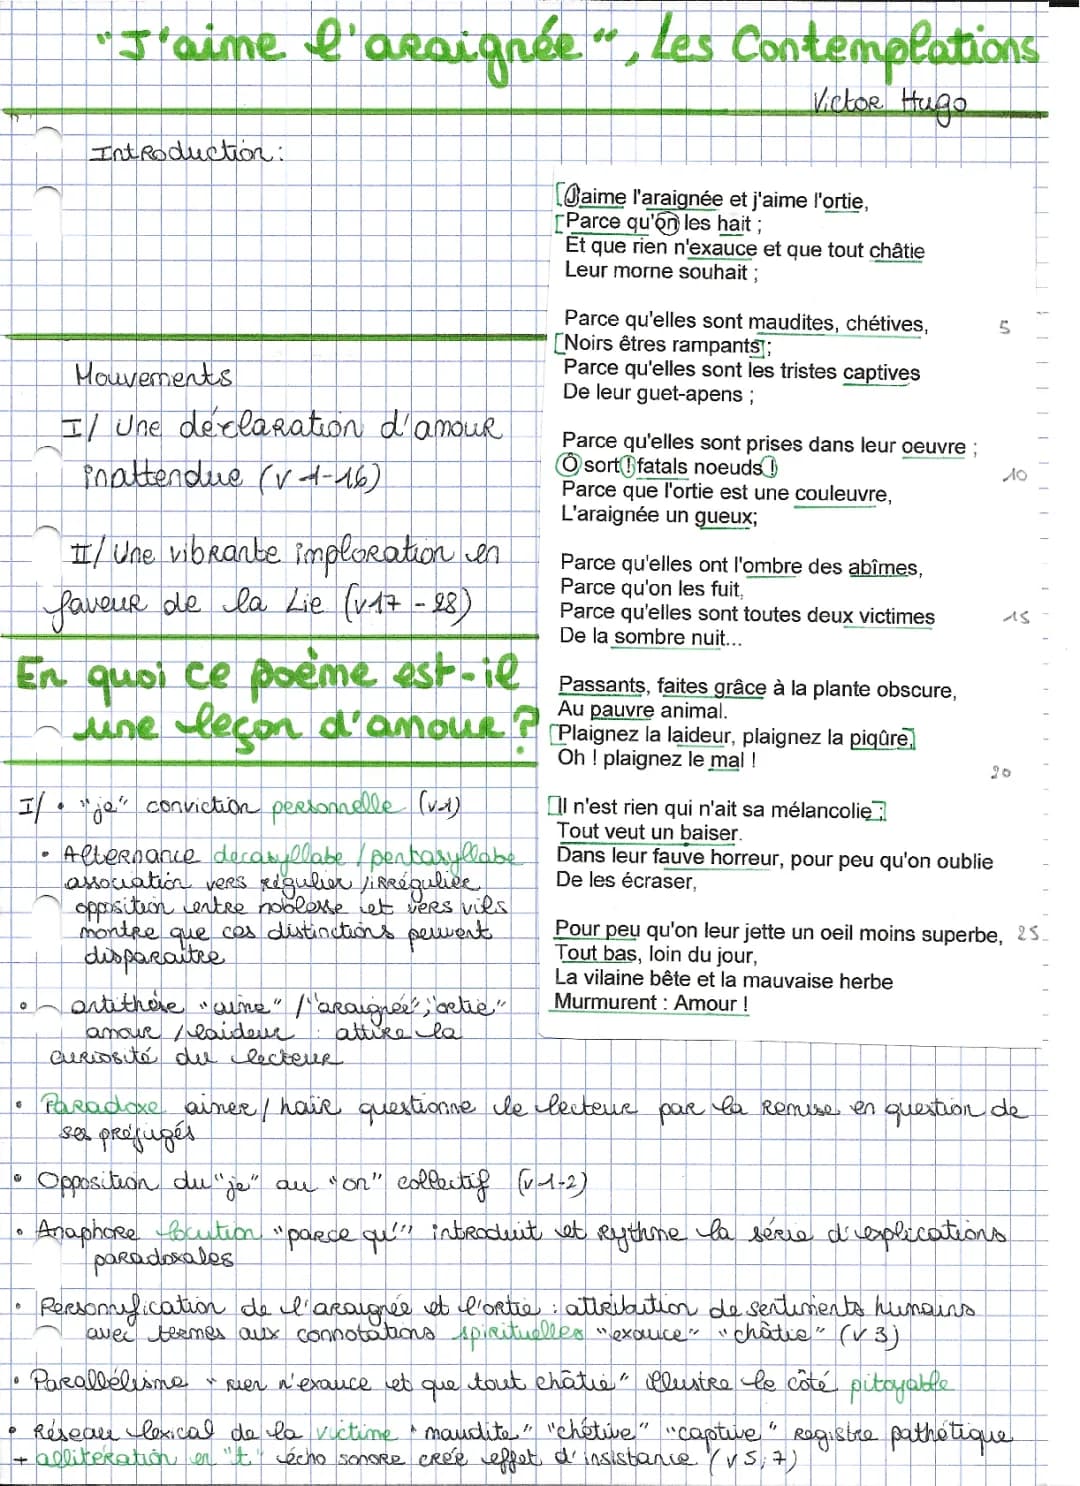 "J'aime l'araignée", Les Contemplations
Victor Hugo
Introduction:
Mouvements
I/ Une déclaration d'amour
inattendue (v 1-16)
II/ Une vibrante imploration en
faveur de la Lie (v17 - 28)
En quoi ce poème est-il
une leçon d'amour ?
J'aime l'araignée et j'aime l'ortie,
Parce qu'on les hait ;
Et que rien n'exauce et que tout châtie
Leur morne souhait ;
Parce qu'elles sont maudites, chétives, 5
Noirs êtres rampants ;
Parce qu'elles sont les tristes captives
De leur guet-apens ;
Parce qu'elles sont prises dans leur oeuvre ;
Ô sort ! fatals noeuds ! 10
Parce que l'ortie est une couleuvre,
L'araignée un gueux;
Parce qu'elles ont l'ombre des abîmes,
Parce qu'on les fuit,
Parce qu'elles sont toutes deux victimes 15
De la sombre nuit...
Passants, faites grâce à la plante obscure,
Au pauvre animal.
Plaignez la laideur, plaignez la piqûre,
Oh ! plaignez le mal ! 20
Il n'est rien qui n'ait sa mélancolie ;
Tout veut un baiser.
Dans leur fauve horreur, pour peu qu'on oublie
De les écraser,
Pour peu qu'on leur jette un oeil moins superbe, 25
Tout bas, loin du jour,
La vilaine bête et la mauvaise herbe
Murmurent : Amour !
I/ • "je" conviction personnelle (v1)
• Alternance decasyllabe / pentasyllabe
association vers régulier / irrégulier
opposition entre noblesse et vers vils
montre que ces distinctions peuvent
disparaître
• antithèse "aime" / "araignée"; "ortie"
amour / laideur : attire la
curiosité du lecteur
• Paradoxe aimer / haïr questionne le lecteur par la remise en question de
ses préjugés
• Opposition du "je" au "on" collectif (v 1-2)
• Anaphore locution "parce qu'" introduit et rythme la série d'explications
paradoxales
• Personnification de l'araignée et l'ortie : attribution de sentiments humains
avec termes aux connotations spirituelles "exauce" "châtie" (v 3)
• Parallélisme "rien n'exauce et que tout châtie" illustre le côté pitoyable
• Réseau lexical de la victime "maudite" "chétive" "captive" Registre pathétique
+ allitération en "t" écho sonore crée effet d'insistance (v 5; 7)